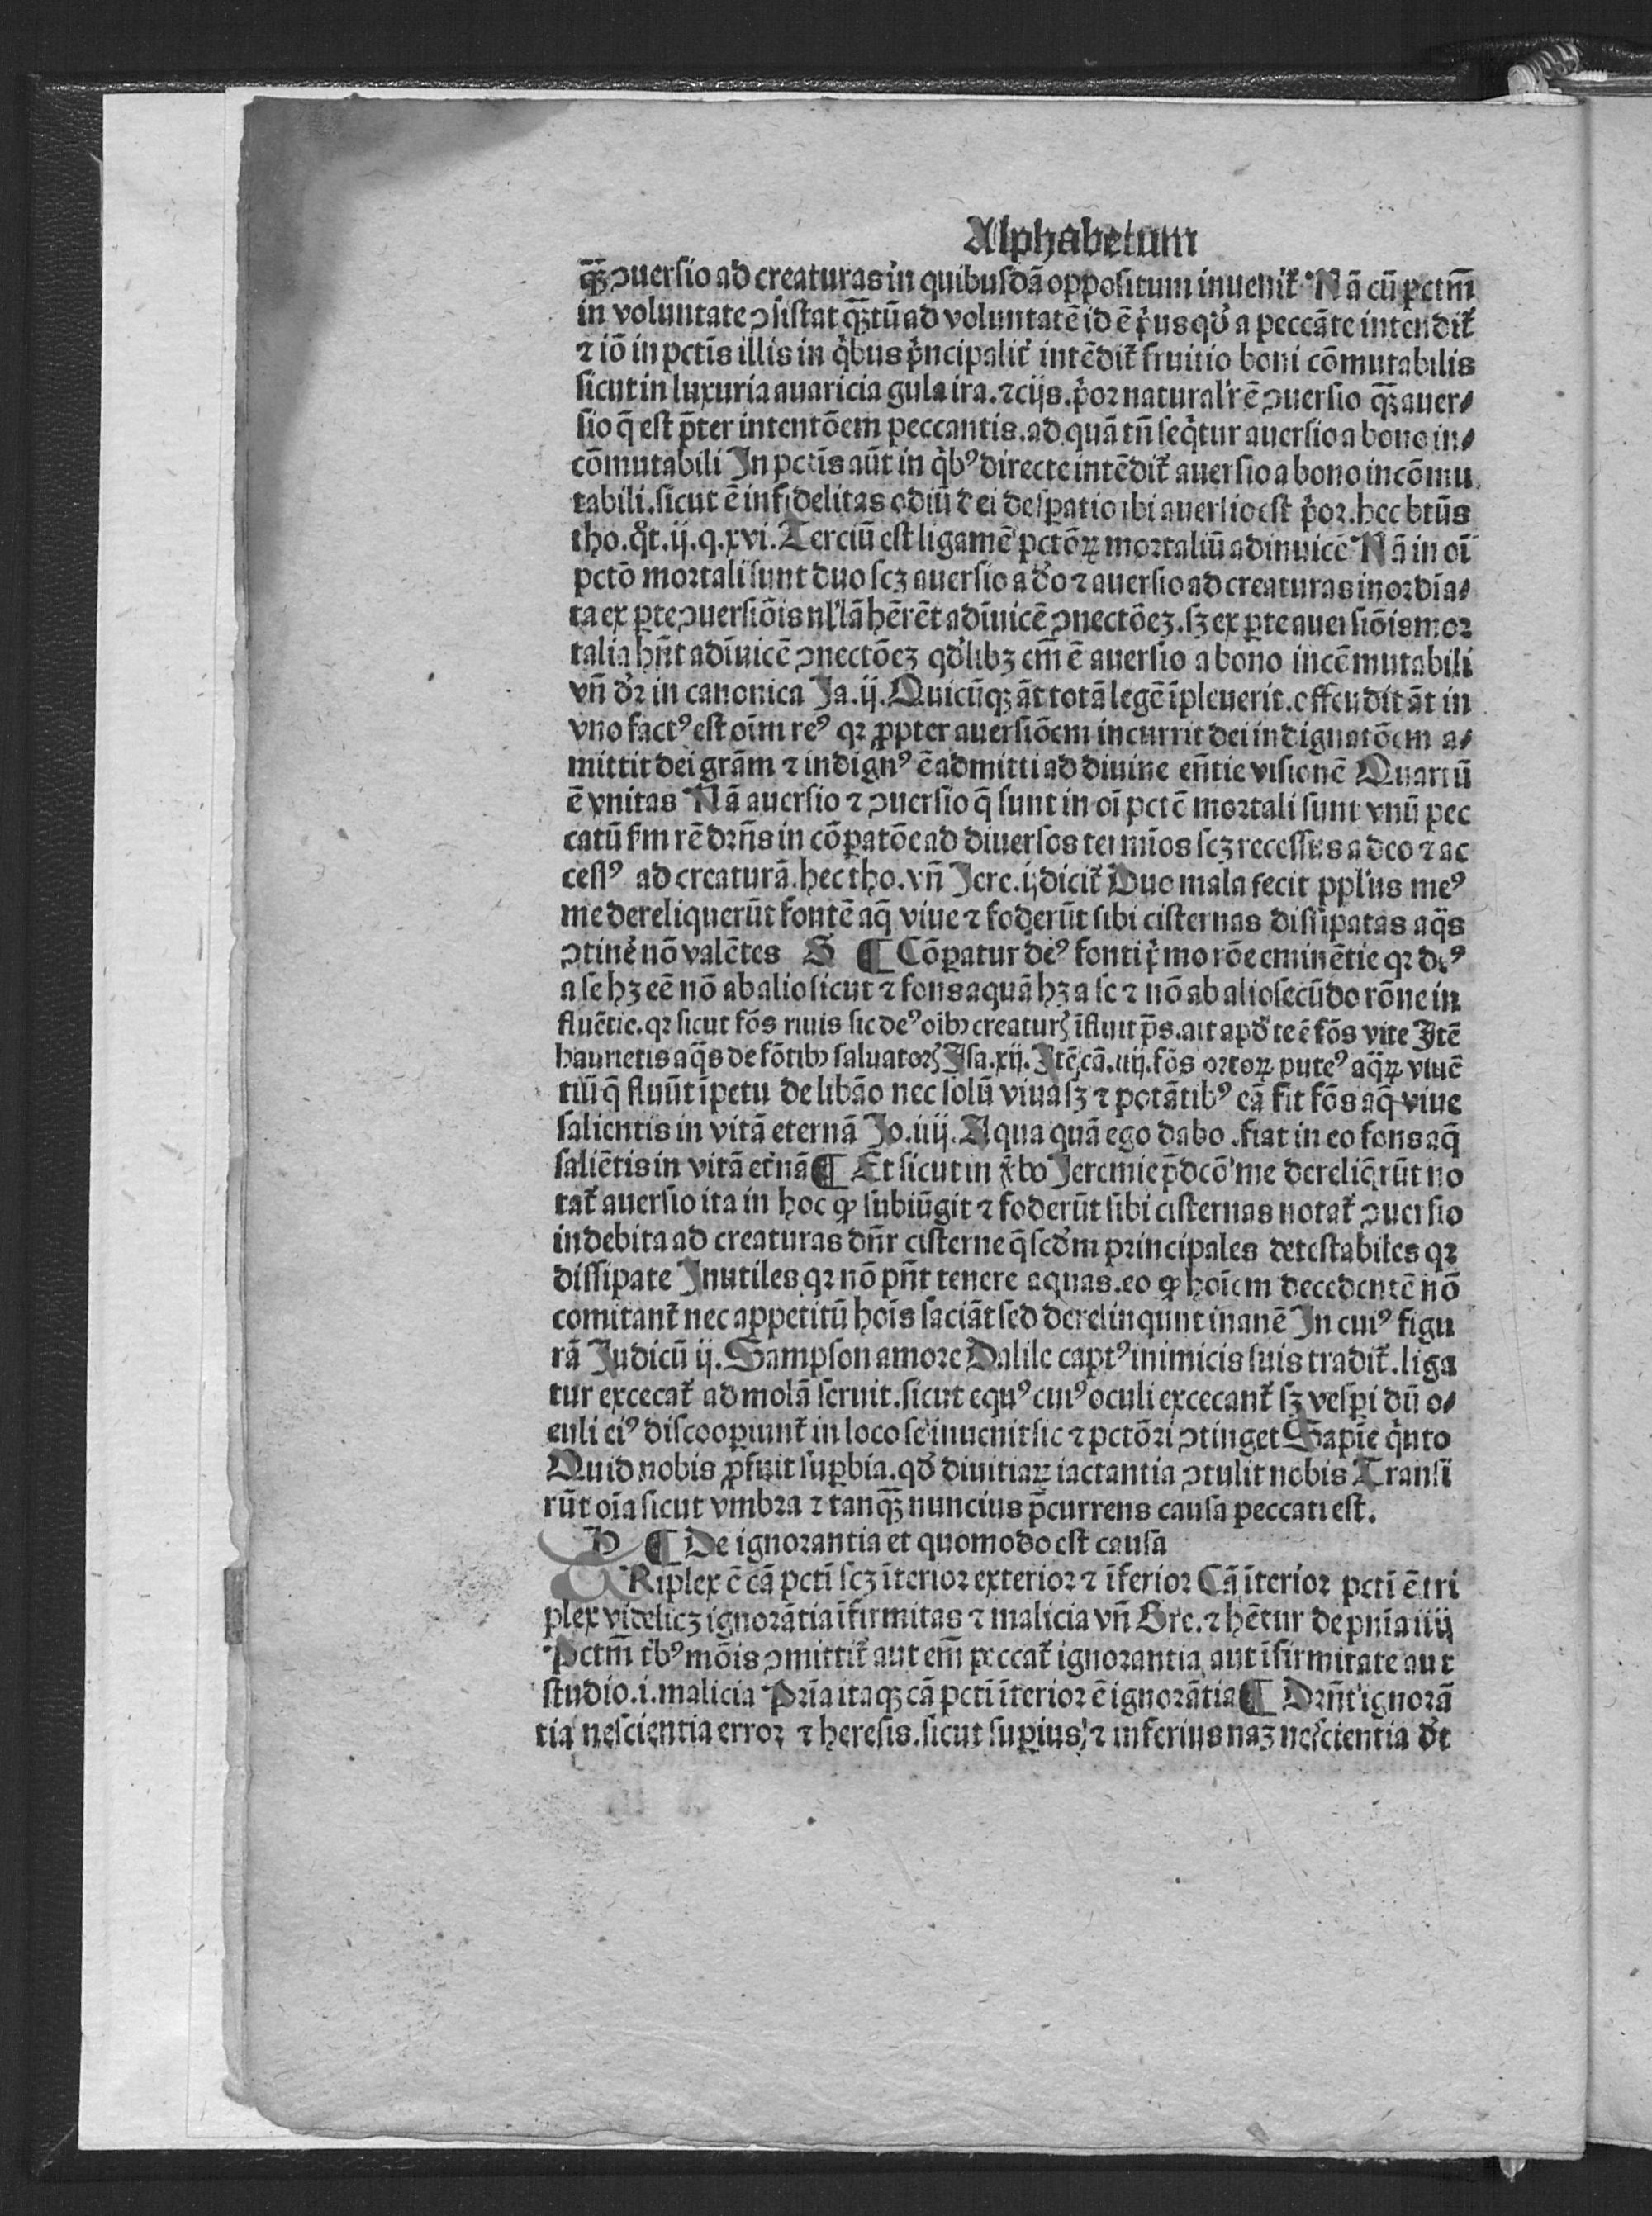 Alphabetum
qꝫ ꝯuersio ad creaturas in quibusdā oppositum inuenit᷑ Nā cū pctm̄
in voluntate ꝯsistat qꝫtū ad voluntatē id ē prius qd a peccāte intendit᷑
⁊ iō in pctīs illis in qͥbus pͥncipalit᷑ intēdit᷑ fruitio boni cōmutabilis
sicut in luxuria auaricia gula ira. ⁊ cijs. pͥor natural'r ē ꝯuersio qꝫ auer⸗
sio q̄ est p̄ter intentōem peccantis. ad quā tn̄ seqͥtur auersio a bono in⸗
cōmutabili In pctīs aūt in qͥbꝰ directe intēdit᷑ auersio a bono incōmu
tabili. sicut ē infidelitas odiū dei desꝑatio ibi auersio est pͥor. hec btūs
tho. q̄t. ij. q. xvi. Terciū est ligamē pctōꝝ mortaliū adinuicē Nā in oī
pctō mortali sunt duo scꝫ auersio a dō ⁊ auersio ad creaturas inordīa⸗
ta ex ꝑte ꝯuersiōis nl'lā hērēt adīuicē ꝯnectōeꝫ. sꝫ ex ꝑte auersiōis mor
talia hn̄t adīuicē ꝯnectōeꝫ qd'libꝫ em̄ ē auersio a bono incōmutabili
vn̄ dr̄ in canonica Ja. ij. Quicūqꝫ āt totā legē īpleuerit. offendit āt in
vno factꝰ est oīm reꝰ qꝛ ꝓpter auersiōem incurrit dei indignatōem a⸗
mittit dei grām ⁊ indignꝰ ē admitti ad diuine en̄tie visionē Quartū
ē vnitas Nā auersio ⁊ ꝯuersio q̄ sunt in oī pctō mortali sunt vnū pec
catū fm rē drn̄s in cōꝑatōe ad diuersos termīos scꝫ recessus a deo ⁊ ac
cessꝰ ad creaturā. hec tho. vn̄ Jere. ij dicit᷑ Duo mala fecit ppl'us meꝰ
me dereliquerūt fontē aq̄ viue ⁊ foderūt sibi cisternas dissipatas aq̄s
ꝯtinē nō valētes G ¶ Cōꝑatur deꝰ fonti pͥmo rōe eminētie qꝛ deꝰ
a se hꝫ eē nō ab alio sicut ⁊ fons aquā hꝫ a se ⁊ nō ab alio secūdo rōne in
fluētie. qꝛ sicut fōs riuis sic deꝰ oībꝫ creaturꝭ īfluit p̄s. ait apd' te ē fōs vite Jtē
haurietis aq̄s de fōtibꝫ saluatorꝭ Jsa. xij. Jtē cā. iiij. fōs ortoꝝ puteꝰ aq̄ꝝ viuē
tiū q̄ fluūt īpetu de libāo nec solū viua sꝫ ⁊ potātibꝰ eā fit fōs aq̄ viue
salientis in vitā eternā Jo. iiij. Aqua quā ego dabo. fiat in eo fons aq̄
saliētis in vitā et᷑nā ¶ Et sicut in v̄bo Jeremie p̄dcō me dereliq̄rūt no
tat᷑ auersio ita in hoc ꝙ subiūgit ⁊ foderūt sibi cisternas notat᷑ ꝯuersio
indebita ad creaturas dn̄r cisterne q̄ scd'm principales detestabiles qꝛ
dissipate Jnutiles qꝛ nō pn̄t tenere aquas. eo ꝙ hoīem decedentē nō
comitant᷑ nec appetitū hoīs saciāt sed derelinqunt inanē Jn cuiꝰ figu
rā Judicū ij. Sampson amore Dalile captꝰ inimicis suis tradit᷑. liga
tur excecat᷑ ad molā seruit. sicut equꝰ cuiꝰ oculi excecant᷑ sꝫ vesꝑi dū o⸗
culi eiꝰ discooꝑiunt᷑ in loco se inuenit sic ⁊ pctōri ꝯtinget Sapīe qͥnto
Quid nobis ꝓfuit suꝑbia. qd' diuitiaꝝ iactantia ꝯtulit nobis Transī
rūt oīa sicut vmbra ⁊ tanqꝫ nuncius p̄currens causa peccati est.
H ¶ De ignorantia et quomodo est causa
TRiplex ē cā pctī scꝫ īterior exterior ⁊ īferior Cā īterior pctī ē tri
plex videlicꝫ ignorātia īfirmitas ⁊ malicia vn̄ Gre. ⁊ hētur de pnīa iiij
Pctm̄ t͛bꝰ mōis ꝯmittit᷑ aut em̄ peccat᷑ ignorantia aut īfirmitate aut
studio. i. malicia Prīa itaqꝫ cā pctī īterior ē ignorātia ¶ Drn̄t ignorā
tia nescientia error ⁊ heresis. sicut suꝑius ⁊ inferius naꝫ nescientia dt